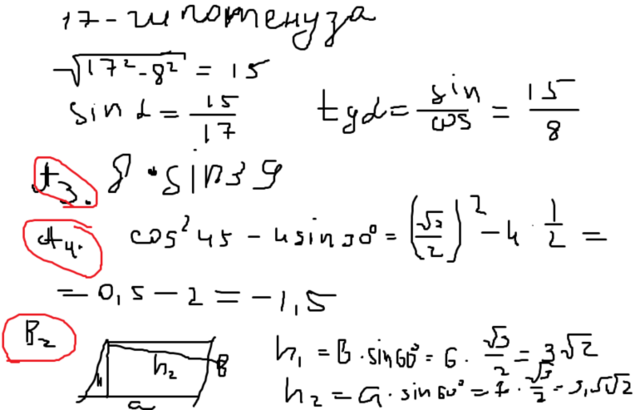 17 - гипотенуза
√17² - 8² = 15
sin α = 15/17
tg α = sin/cos = 15/8
A3. 8 · sin 39
A4. cos² 45 - 4 sin 30° = (√2/2)² - 4 · 1/2 =
= 0,5 - 2 = -1,5
B2
h h₂ B a
h₁ = B · sin 60° = 6 · √3/2 = 3√2
h₂ = a · sin 60° = 7 · √3/2 = 3,5√2